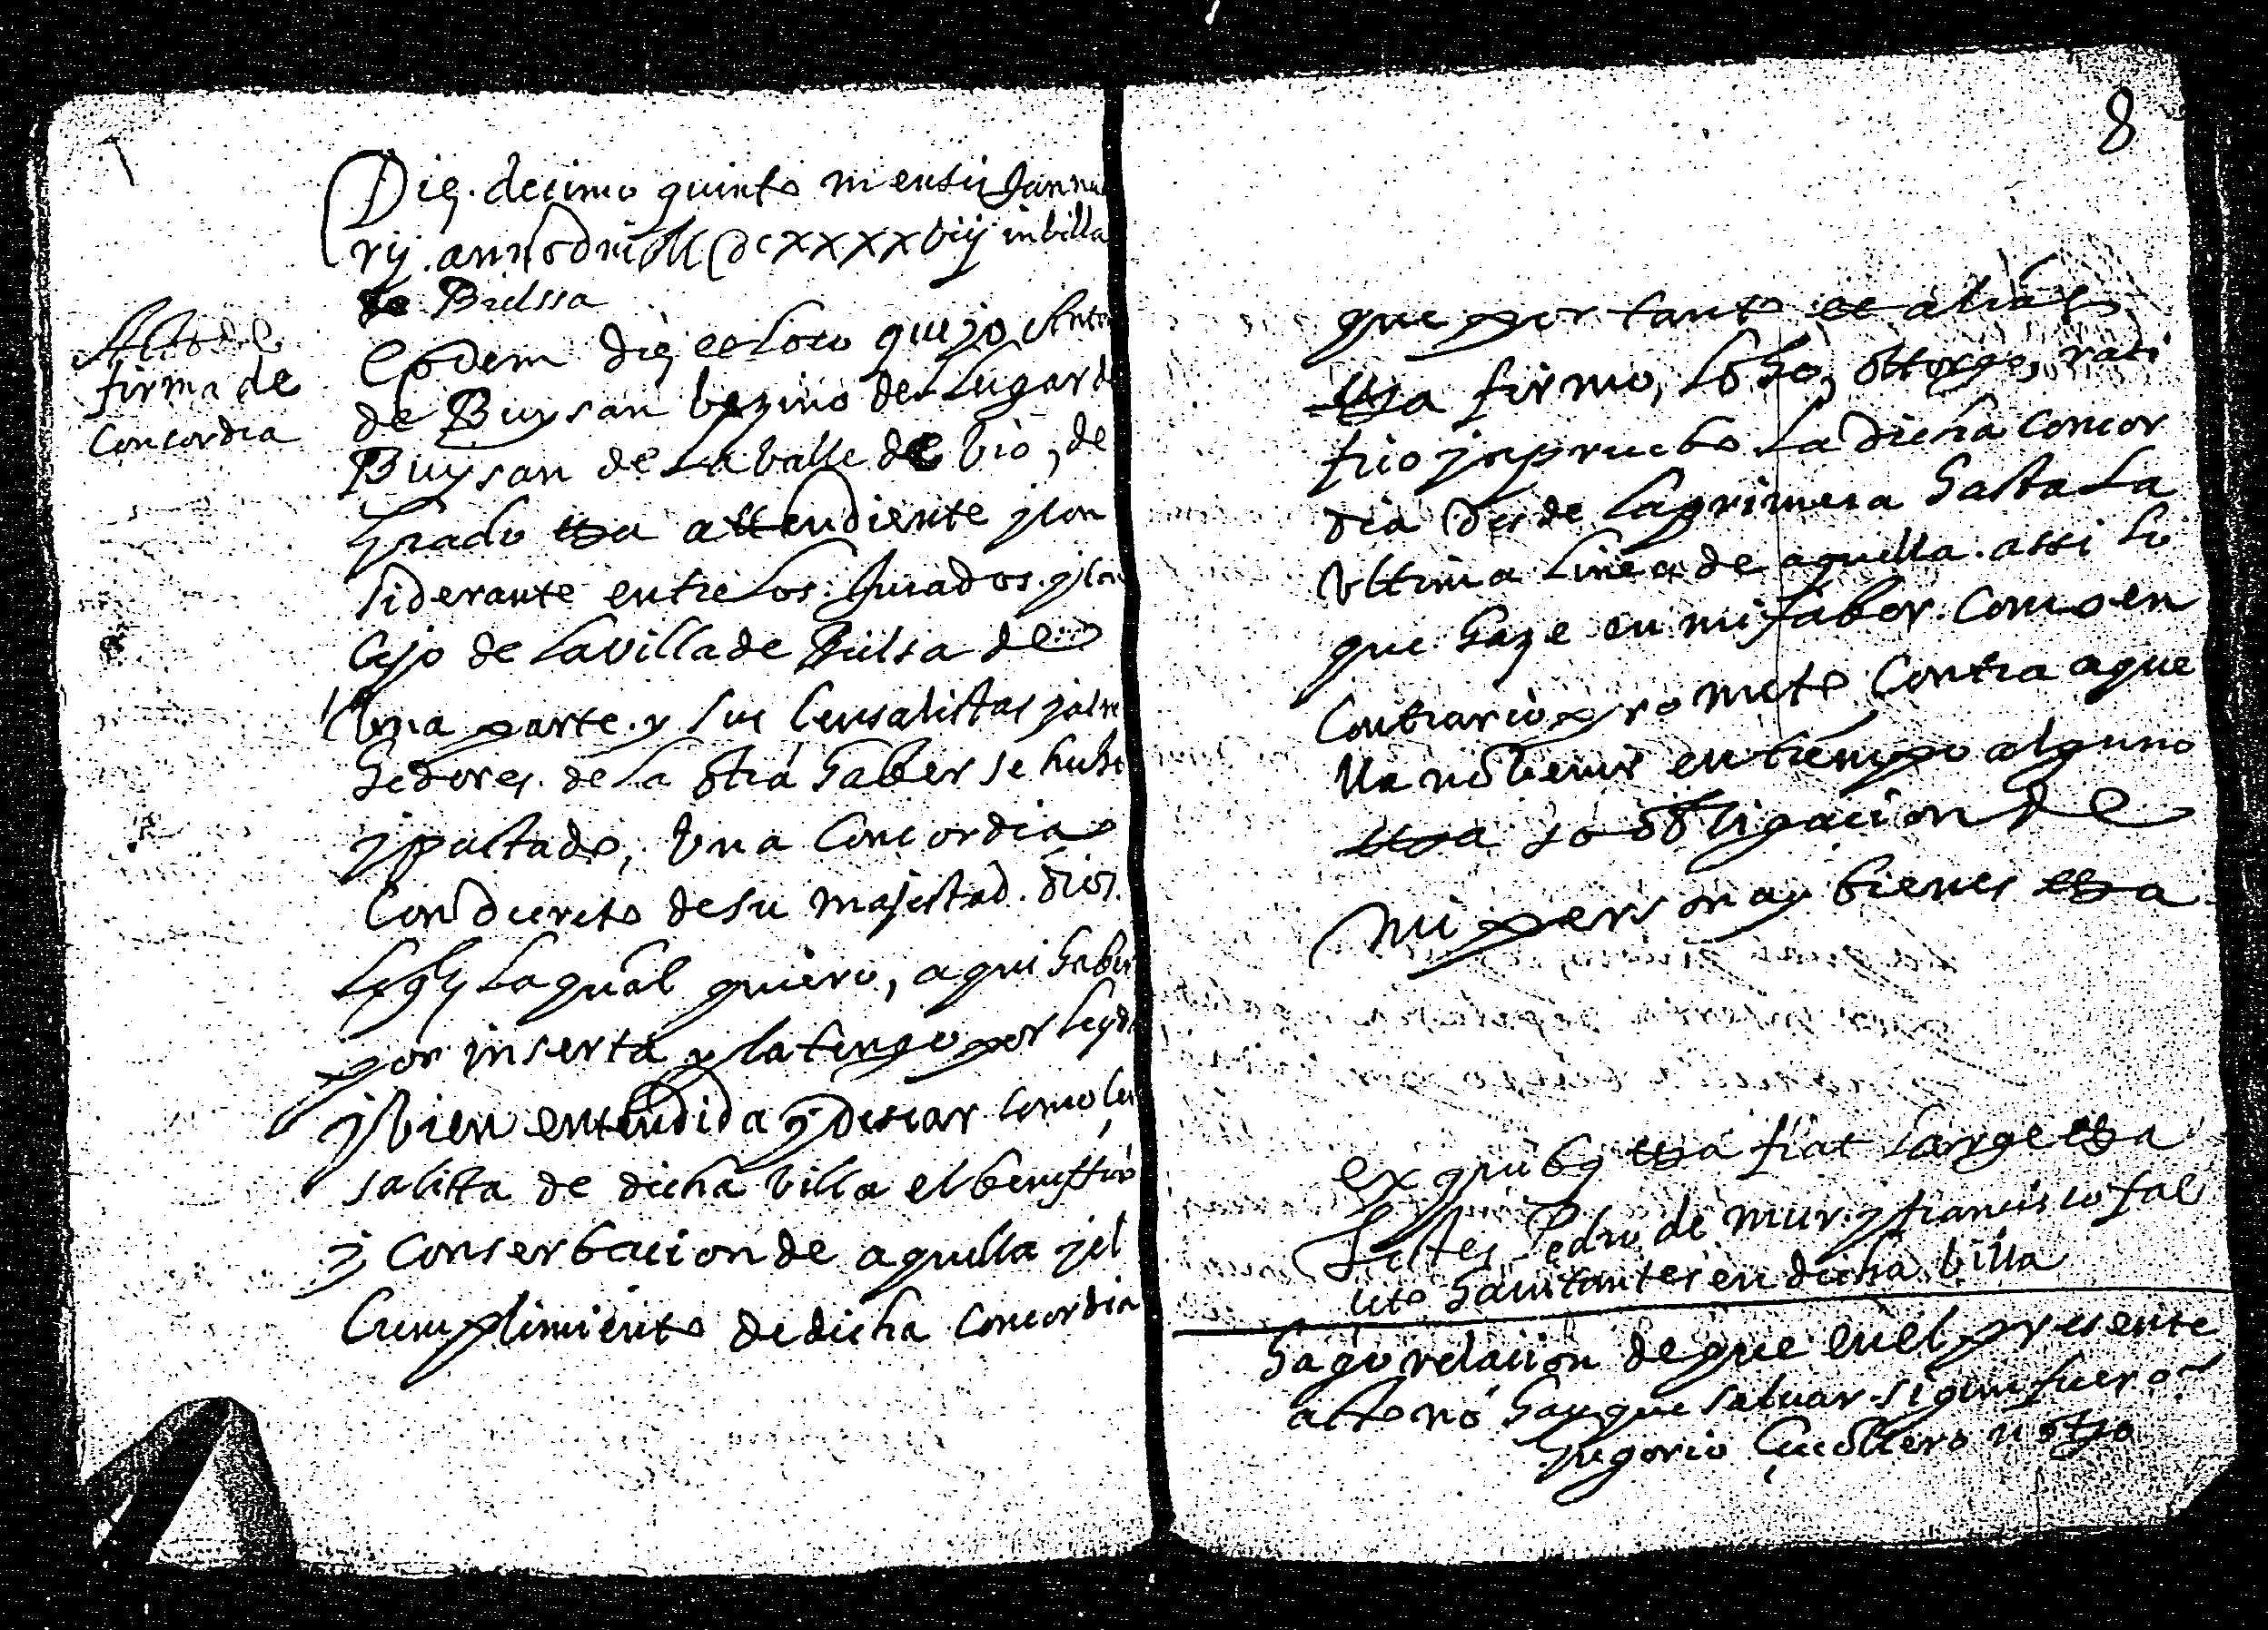 8
Die. decimo quinto mensis Januua
rij. anno dni M dcxxxxviij in billa
de Bielssa
Acto de
firma de
Concordia
Eodem die et loco que yo Anto
de Buysan bezino del Lugar de
Buysan de La balle de bio, de
grado etta attendiente y con
siderante entre Los Jurados y Con
cejo de La villa de Bielsa de
Una parte y sus Censalistas y alre
hedores de La otra haber se hecho
y pactado, Una Concordia
Con decreto de su majestad. dios
La qual quiero, aqui haber
por inserta y la tengo por leyda
y bien entendida y desear como Cen
salista de dicha villa el beneffitio
y Conserbacion de aquella y el
Cumplimiento de dicha Concordia
que por tanto et alias
etta firmo, Loho, ottorgo, rati
fico y apruebo La dicha Concor
dia desde La primera hasta La
Ultima Linea de aquella. assi Lo
que haze en mi fabor. Como en
Contrario y prometo Contra aque
lla no benir en tiempo alguno
etta so obligacion de
mi persona y bienes etta
ex quibus etta fiat Large etta
Testes Pedro de mur y francisco fal
ceto havitantes en dicha billa
hago relacion de que en el presente
acto no hay que salvar sigun fuero
Gregorio notro